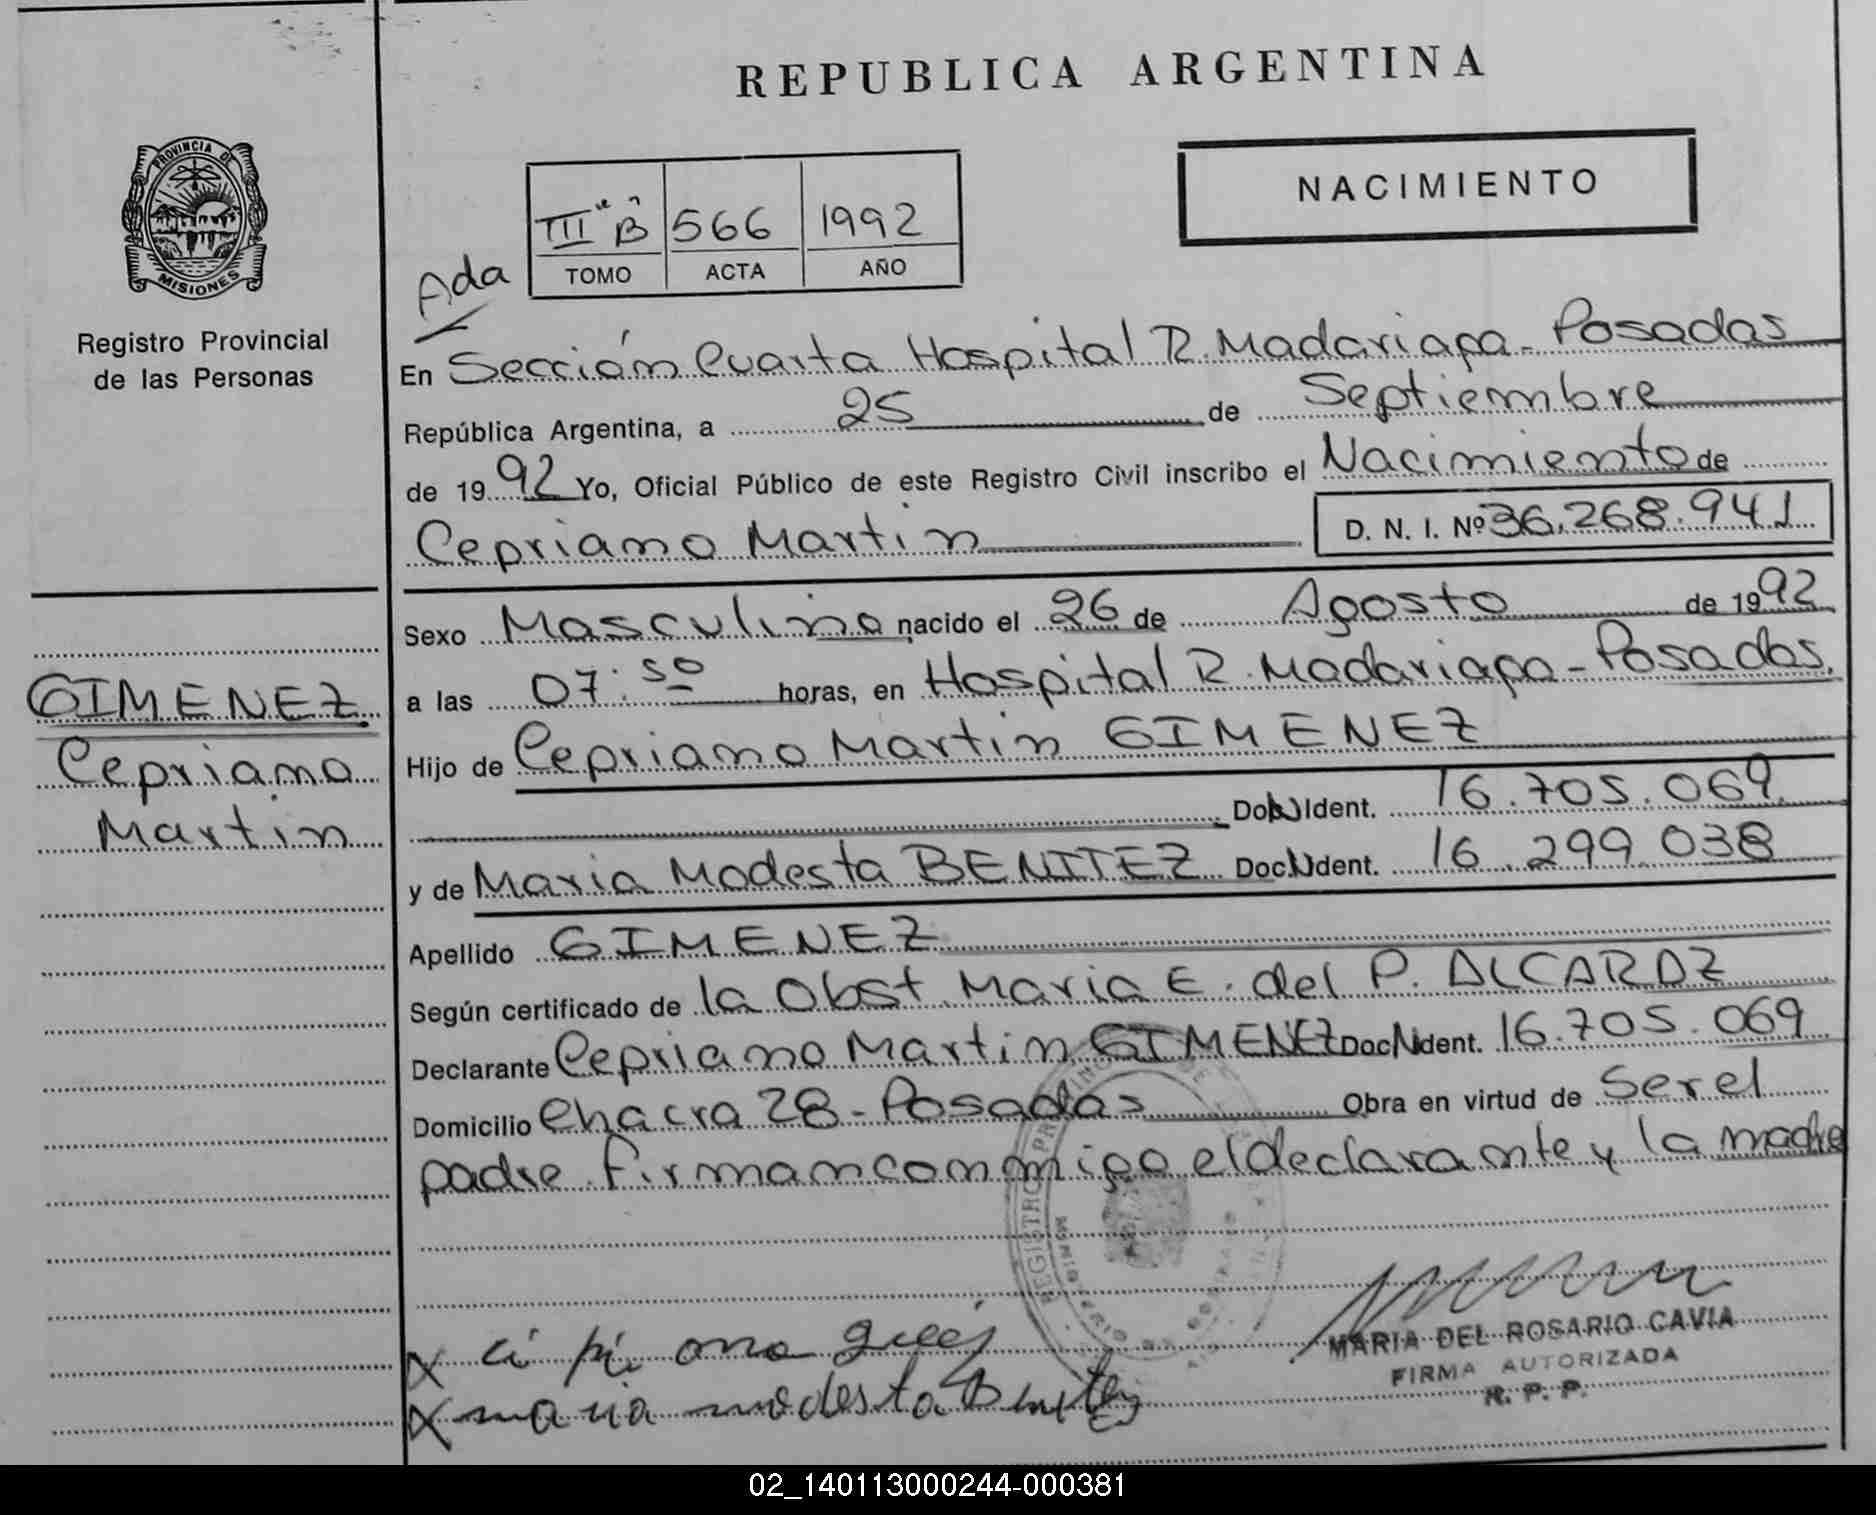 REPUBLICA ARGENTINA
PROVINCIA DE
MISIONES
Registro Provincial
de las Personas
NACIMIENTO
III "B" 566 1992
TOMO ACTA AÑO
Ada
En Sección Cuarta Hospital R. Madariaga - Posadas
República Argentina, a 25 de Septiembre
de 1992 Yo, Oficial Público de este Registro Civil inscribo el Nacimiento de
Cepriano Martin D. N. I. Nº 36.268.941
Sexo Masculino nacido el 26 de Agosto de 1992
a las 07:50 horas, en Hospital R. Madariaga - Posadas.
Hijo de Cepriano Martin GIMENEZ
Doc. Ident. 16.705.069
y de Maria Modesta BENITEZ Doc. Ident. 16.299.038
Apellido GIMENEZ
Según certificado de la Obst Maria E. del P. ALCARAZ
Declarante Cepriano Martin GIMENEZ Doc. Ident. 16.705.069
Domicilio Chacra 28 - Posadas Obra en virtud de Ser el
padre. Firman conmigo el declarante y la madre
GIMENEZ
Cepriano
Martin
REGISTRO
X ci pi ano
X maria modesta Benitez
MARIA DEL ROSARIO CAVIA
FIRMA AUTORIZADA
R. P. P.
02_140113000244-000381